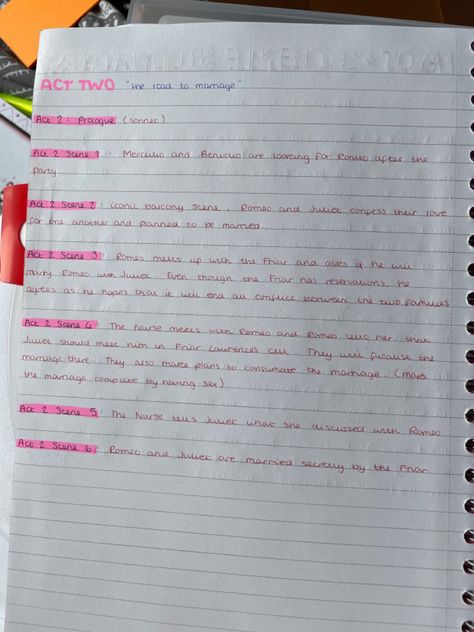 ACT TWO "the road to marriage"
Act 2 : Prologue (sonnet)
Act 2 Scene 1 : Mercutio and Benvolio are looking for Romeo after the
party
Act 2 Scene 2 : iconic balcony scene. Romeo and Juliet confess their love
for one another and planned to be married
Act 2 Scene 3 : Romeo meets up with the Friar and asks if he will
marry Romeo with Juliet. Even though the Friar has reservations, he
agrees as he hopes that it will end all conflict between the two families
Act 2 Scene 4 : The Nurse meets with Romeo and Romeo tells her that
Juliet should meet him in Friar Laurences cell. They will the
marriage there. They also make plans to consumate the marriage. (make
the marriage complete by having sex)
Act 2 Scene 5 : The Nurse tells Juliet what she discussed with Romeo
Act 2 Scene 6 : Romeo and Juliet are married secretly by the Friar